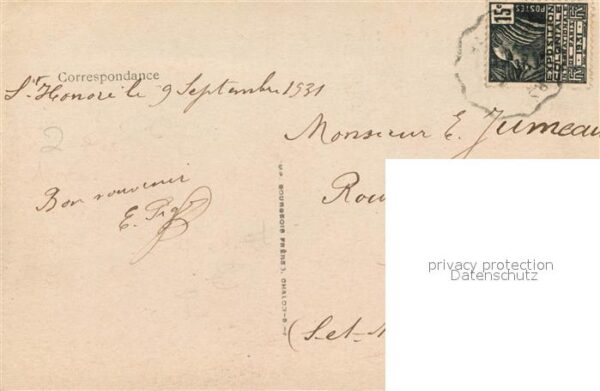 Correspondance
St Honoré le 9 Septembre 1931
Bon souvenir
E.
Monsieur E. Jumeau
(S-et-
15c
POSTES
EXPOSITION
COLONIALE
BOURGEOIS FRÈRES, CHALON-S-
privacy protection
Datenschutz